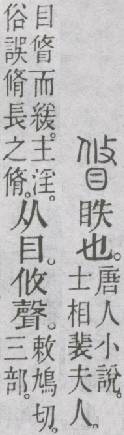 䀺眣也。唐人小說。士相裴夫人。
目䀺而緩。主淫。俗誤脩長之脩。从目。攸聲。敕鳩切。三部。